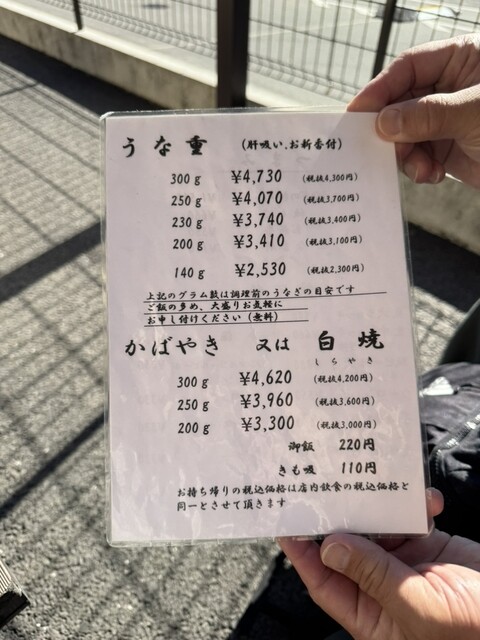 うな重 (肝吸い.お新香付)
300g ¥4,730 (税抜4,300円)
250g ¥4,070 (税抜3,700円)
230g ¥3,740 (税抜3,400円)
200g ¥3,410 (税抜3,100円)
140g ¥2,530 (税抜2,300円)
上記のグラム数は調理前のうなぎの目安です
ご飯の多め、大盛りお気軽に
お申し付けください(無料)
かばやき 又は 白焼
しらやき
300g ¥4,620 (税抜4,200円)
250g ¥3,960 (税抜3,600円)
200g ¥3,300 (税抜3,000円)
御飯 220円
きも吸 110円
お持ち帰りの税込価格は店内飲食の税込価格と
同一とさせて頂きます